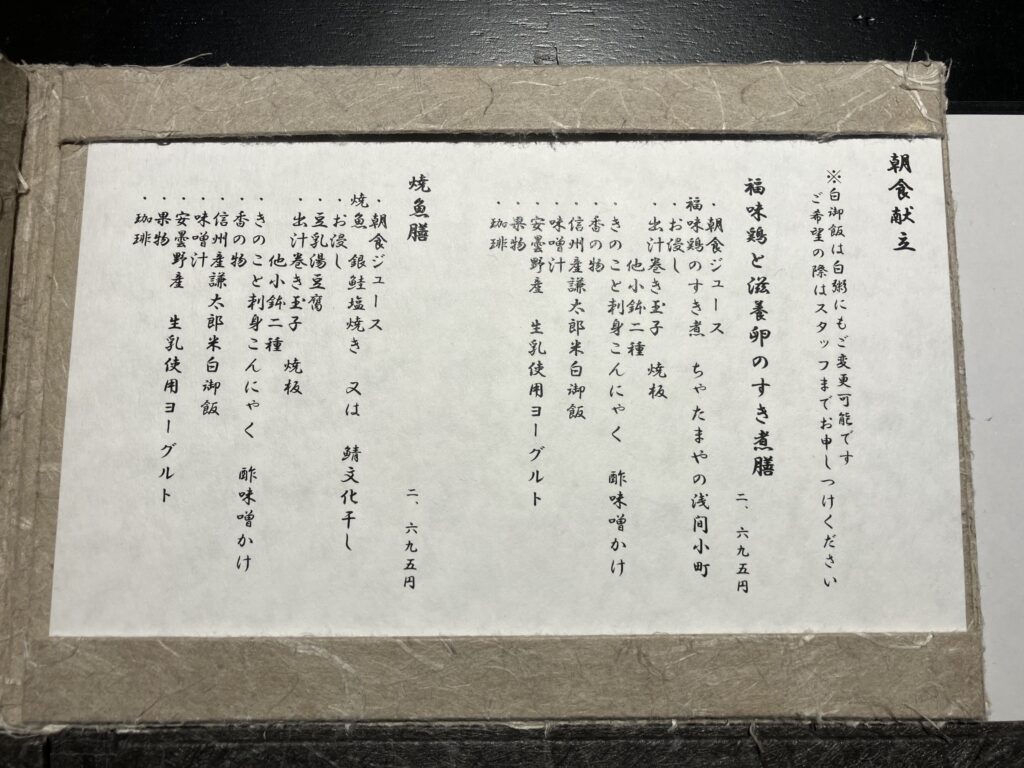 朝食献立
※白御飯は白粥にもご変更可能です
ご希望の際はスタッフまでお申しつけください
福味鶏と滋養卵のすき煮膳
二、六九五円
・朝食ジュース
福味鶏のすき煮 ちゃたまやの浅間小町
・お浸し
他小鉢二種
・出汁巻き玉子 焼板
・きのこと刺身こんにゃく 酢味噌かけ
・香の物
・信州産謙太郎米白御飯
・味噌汁
・安曇野産 生乳使用ヨーグルト
・果物
・珈琲
焼魚膳
二、六九五円
・朝食ジュース
焼魚 銀鮭塩焼き 又は 鯖文化干し
・お浸し
・豆乳湯豆腐
・出汁巻き玉子 焼板
他小鉢二種
・きのこと刺身こんにゃく 酢味噌かけ
・香の物
・信州産謙太郎米白御飯
・味噌汁
・安曇野産 生乳使用ヨーグルト
・果物
・珈琲